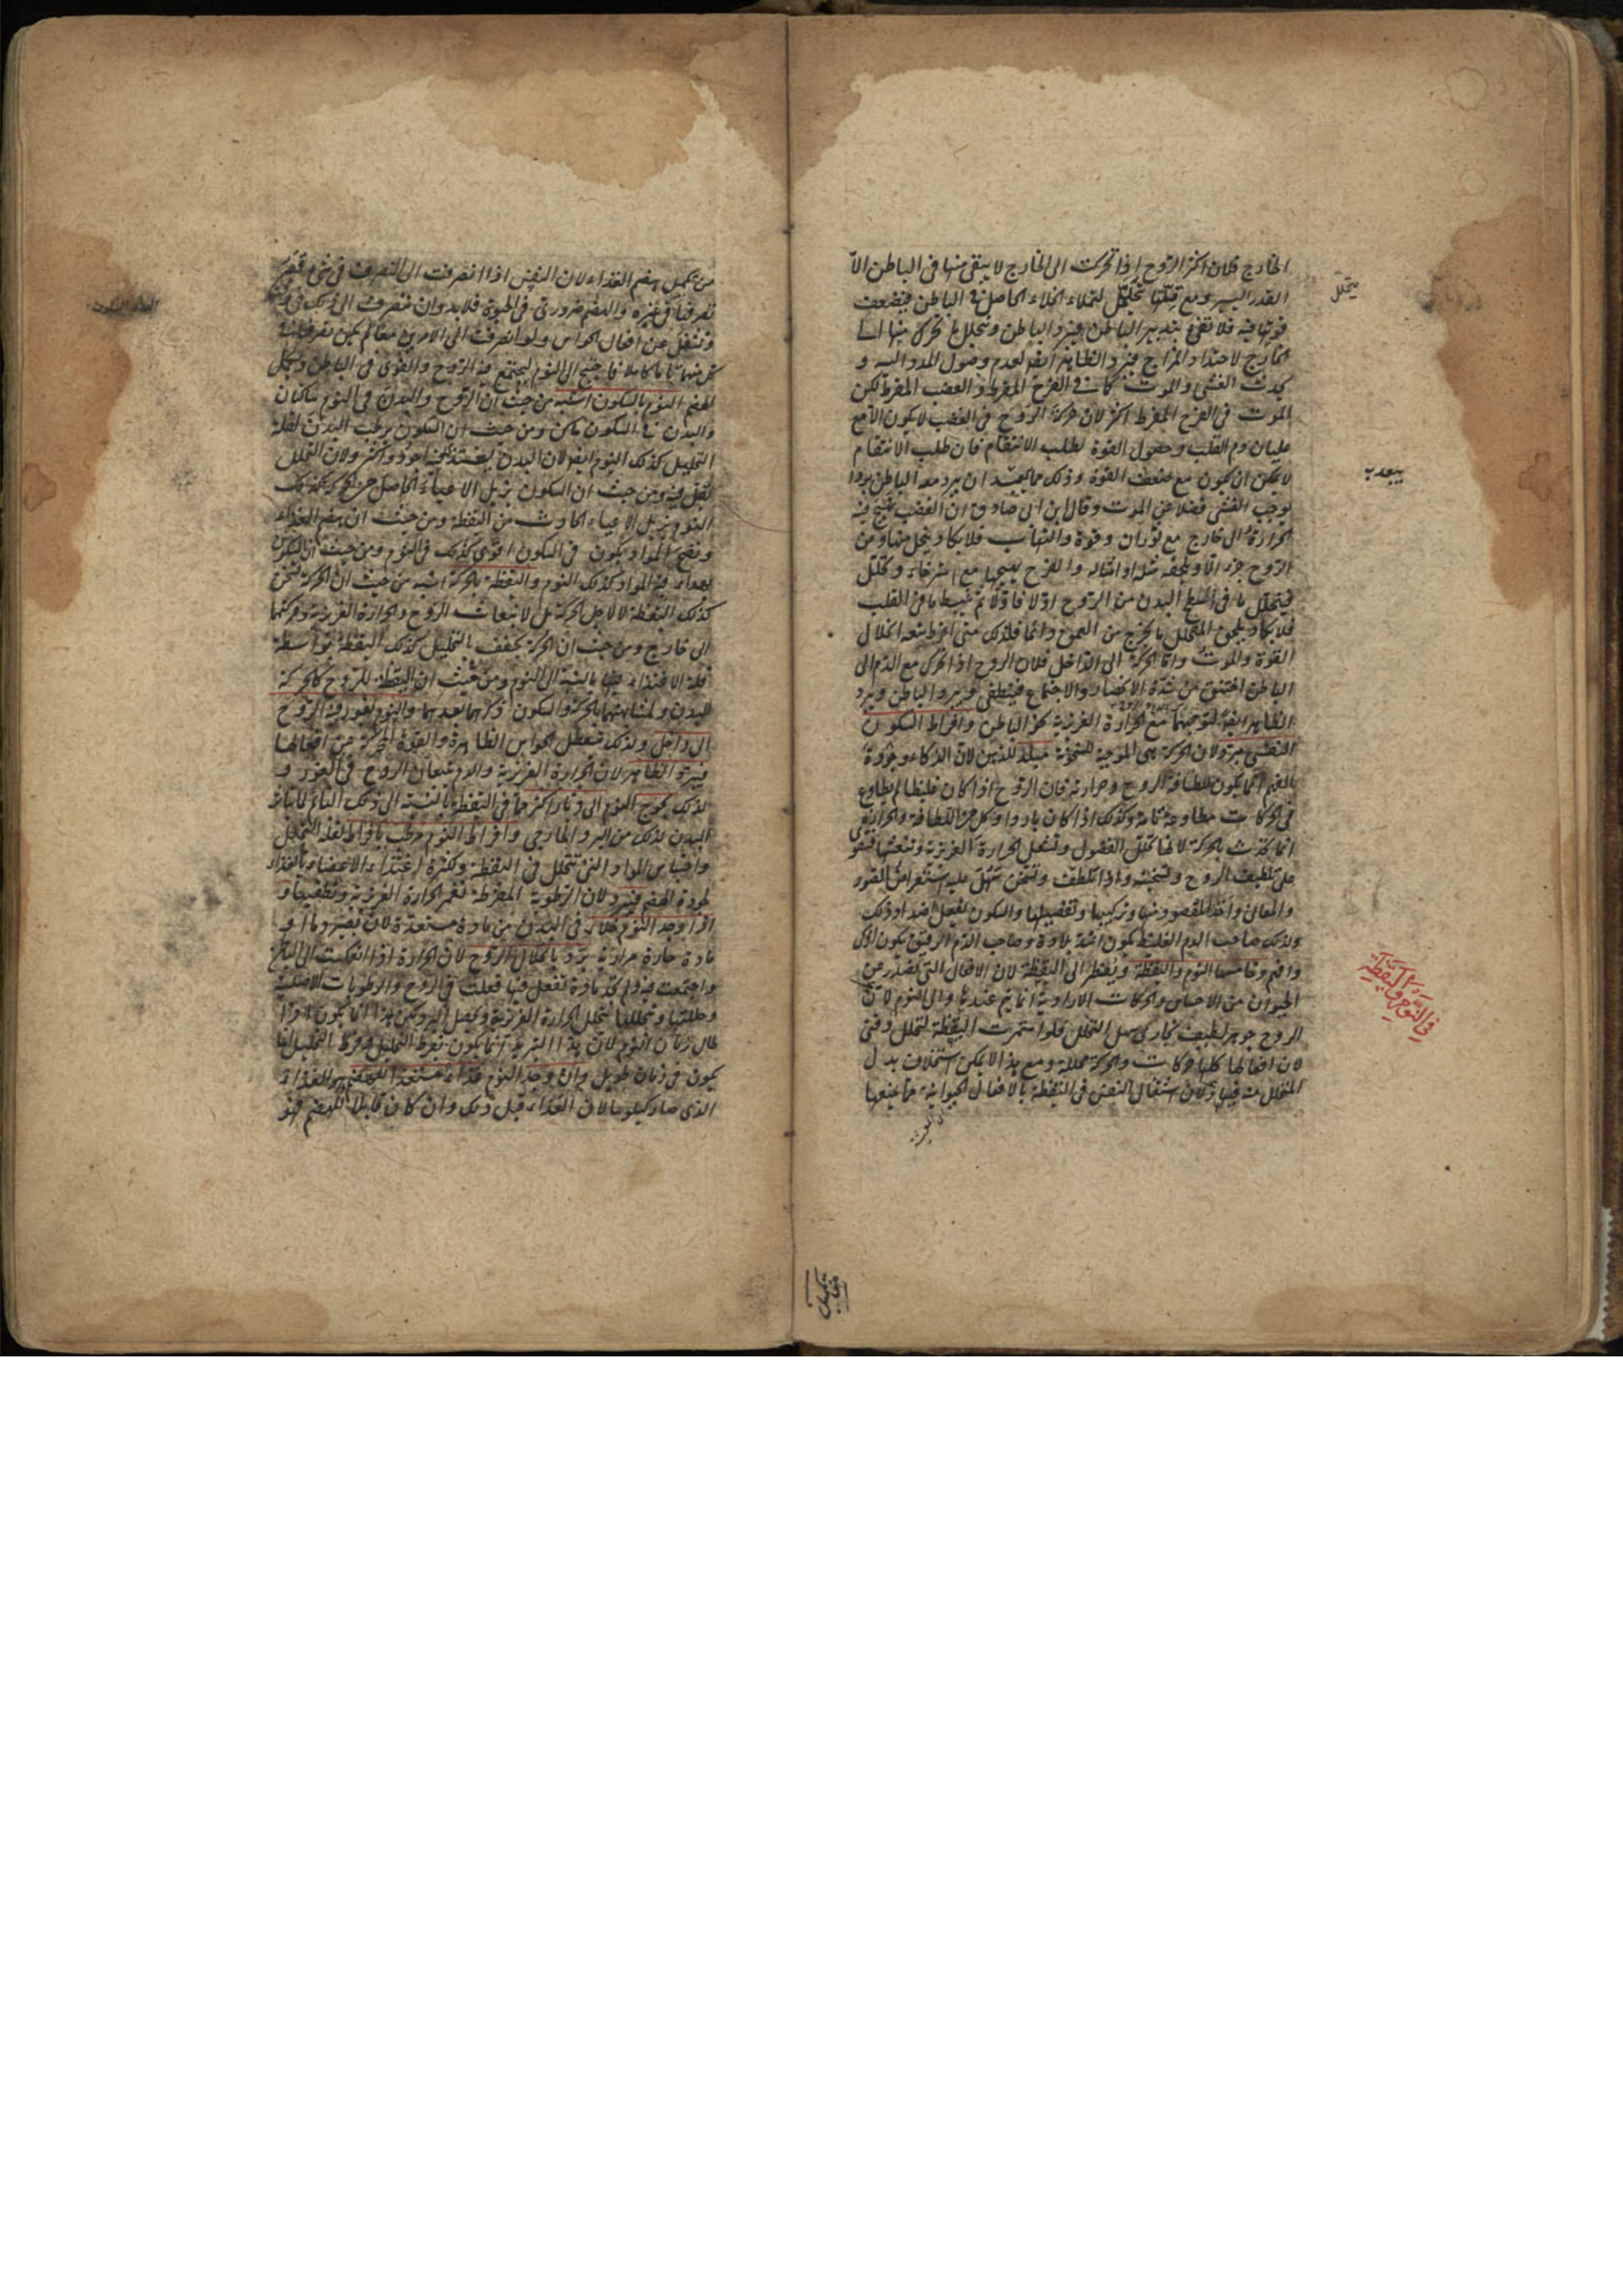 الخارج فلان اكثر الروح اذا تحركت الى الخارج لا يبقى منها فى الباطن الا
القدر اليسير ومع قلتها تتخلخل لتملاء الخلاء الحاصل فى الباطن فيضعف
قوتها فيه فلا تفى بتدبير الباطن فيبرد الباطن ويتحلل ما تحرك منها الى
الخارج لاحتداد المزاج فيبرد الظاهر ايضا لعدم وصول المدد اليه و
يحدث الغشى والموت كما فى الفرح المفرط والغضب المفرط لكن
الموت فى الفرح المفرط اكثر لان حركة الروح فى الغضب لا يكون الا مع
غليان دم القلب وحصول القوة لطلب الانتقام فان طلب الانتقام
لا يمكن ان يكون مع ضعف القوة وذلك مما يبعد ان يبرد معه الباطن بردا
يوجب الغشى فضلا عن الموت وقال ابن ابى صادق ان الغضب يهيج فيه
الحرارة الى خارج مع ثوران وقوة والتهاب فلا يكاد يتحلل منها ومن
الروح جزء الا ويلحقه مثله او امثاله والفرح يهيجها مع استرخاء وتخلخل
فيتحلل ما فى البدن من الروح اولا فاولا ثم ينبسط ما فى القلب
فلا يكاد يلحق المتحلل ما يخرج من العوض دائما فلذلك متى افرط تبعه انحلال
القوة والموت واما الحركة الى الداخل فلان الروح اذا تحرك مع الدم الى
الباطن اختنق من شدة الانحصار والاجتماع فينطفى ويبرد الباطن ويبرد
الظاهر ايضا لتوجههما مع الحرارة الغريزية نحو الباطن وافراط السكون
النفسى مبرد لان الحركة هى الموجبة للسخونة مبلد للذهن لان الذكاء وجودة
الفهم انما يكون للطافة الروح وحرارته فان الروح اذا كان غليظا لم يطاوع
فى الحركات مطاوعة تامة وكذلك اذا كان باردا وكل من اللطافة والحرارة
انما يحدث بالحركة لانها تحلل الفضول وتشعل الحرارة الغريزية وتنعشها فتقوى
على تلطيف الروح وتسخينه واذا تلطف وتسخن سهل عليه استعراض الصور
والمعانى واخذ المقصود منها وتركيبها وتفصيلها والسكون يفعل ضد ذلك
ولذلك صاحب الدم الغليظ يكون اشد بلادة وصاحب الدم الرقيق يكون اذكى
وافهم وخامسها النوم واليقظة ويضطر الى اليقظة لان الافعال التى تصدر عن
الحيوان من الاحساس والحركات الارادية انما يتم عندها والى النوم لان
الروح جوهر لطيف بخارى سهل التحلل فلو استمرت اليقظة لتحلل وفنى
لان افعالها كلها حركات والحركة محللة ومع هذا لا يمكن استخلاف بدل
المتحلل منه فيها ولان اشتغال النفس فى اليقظة بالافعال الحيوانية مما يمنعها
يتخلل
يبعد ب
فى النوم واليقظة
من تكميل هضم الغذاء لان النفس اذا انصرفت الى التصرف فى شىء قصر
تصرفها فى غيره والهضم ضرورى فى الحيوة فلا بد وان تنصرف الى ذلك فى وقت
وتنتقل عن افعال الحواس ولو انصرفت الى الامرين معا لم يكن تصرفها فى
كل منهما تاما كاملا فاحتيج الى النوم ليجتمع فيه الروح والقوى فى الباطن ويكمل
الهضم النوم بالسكون اشبه من حيث ان الروح والبدن فى النوم ساكنان
والبدن فى السكون ساكن ومن حيث ان السكون يرطب البدن لقلة
التحليل كذلك النوم ايضا لان البدن يغتذى فيه اجود واكثر ولان التحلل
تقل فيه ومن حيث ان السكون يزيل الاعياء الحاصل من الحركة كذلك
النوم يزيل الاعياء الحادث من اليقظة ومن حيث ان هضم الغذاء
ونضج المواد يكون فى السكون اقوى كذلك فى النوم ومن حيث ان السكون
فيه المواد كذلك النوم واليقظة بالحركة اشبه من حيث ان الحركة تسخن
كذلك اليقظة لا لاجل الحركة بل لانبعاث الروح والحرارة الغريزية وحركتهما
الى خارج ومن حيث ان الحركة يجفف بالتحليل كذلك اليقظة بواسطة
قلة الاغتذاء فيها بالنسبة الى النوم ومن حيث ان اليقظة للروح كالحركة
للبدن ولمشابهتهما بالحركة والسكون ذكرهما بعدهما والنوم يغور فيه الروح
الى داخل ولذلك تتعطل الحواس الظاهرة والقوة المحركة عن افعالها
فيبرد الظاهر لان الحرارة الغريزية والدم يتبعان الروح فى الغور و
لذلك يحوج النوم الى دثار اكثر مما فى اليقظة بالنسبة الى ذلك النائم لما ينال
البدن لذلك من البرد الخارجى وافراط النوم مرطب بافراط لفقد التحلل
واحتباس المواد التى تتحلل فى اليقظة وكثرة اغتذاء الاعضاء بالغذاء
لجودة الهضم فيبرد لان الرطوبة المفرطة تغمر الحرارة الغريزية وتطفيها و
اذا وجد النوم خلاء فى البدن من مادة مستعدة لان تصير دما او
مادة حارة مرارية برد بانحلال الروح لان الحرارة اذا انعكست الى الباطن
واجتمعت فيه ولم تجد مادة تفعل فيها فعلت فى الروح والرطوبات الاصلية
وحللتها وبتحللها تتحلل الحرارة الغريزية ويحصل البرد ولكن هذا انما يكون اذا
طال زمان النوم لان هذا التبريد انما يكون بفرط التحليل وفرط التحليل انما
يكون فى زمان طويل وان وجد النوم غذاء مستعدا للهضم هو الغذاء
الذى صار كيلوسا لان الغذاء قبل ذلك وان كان قابلا للهضم فهو